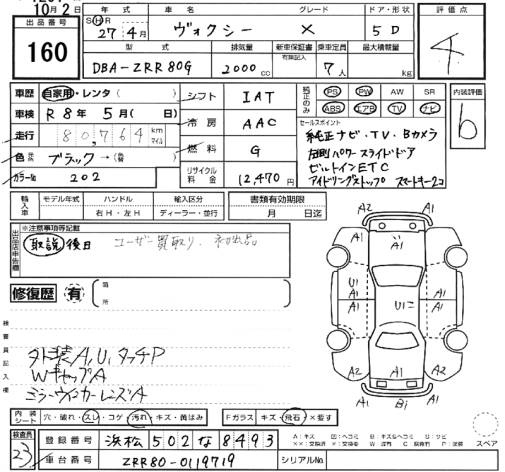 10月2日
出品番号
160
年式 車名 グレード ドア・形状
SHR 27年4月 ヴォクシー X 5D
型式 排気量 新車保証書 乗車定員 最大積載量
有無記入
DBA-ZRR80G 2000cc 7人 kg
評価点
4
車歴 自家用・レンタ( )
車検 R8年5月( 日)
走行 80,764 km マイル
色 ブラック→(替 )
カラーNo 202
シフト IAT
冷房 AAC
燃料 G
リサイクル料金 12,470円
純正のみ
PS PW AW SR
ABS エアB TV ナビ
セールスポイント
純正ナビ・TV・Bカメラ
左側パワースライドドア
ビルトインETC
アイドリングストップ スマートキー2コ
内装評価
b
輸入車
モデル年式 ハンドル 輸入区分
年 右H・左H ディーラー・並行
書類有効期限
月 日迄
出品店申告欄
※注意事項等記載
取説 後日 ユーザー買取り、初出品
修復歴 有
箇所
検査員記入欄
外装A,U,タッチP
WキャップA
ミラーウィンカーレンズA
A2 A1 A1 A1
U1 A1 A1
U1ニ A1 A1
A2 A1 A2
A1 B1 A1
内装シート 穴・破れ・スレ・コゲ・汚れ・キズ・黄ばみ
Fガラス キズ・飛石・×要す
検査員 23
登録番号 浜松502な8493
車台番号 ZRR80-0119719
シリアルNo.
スペア